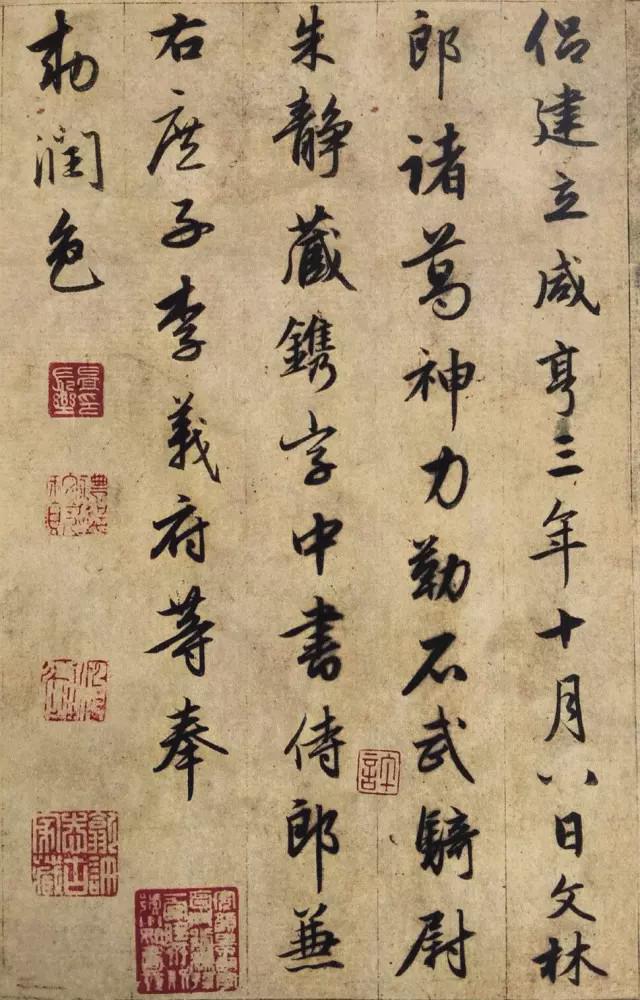 侣建立咸亨三年十月八日文林
郎诸葛神力勒石武騎尉
朱静藏鐫字中書侍郎兼
右庶子李義府等奉
勅潤色